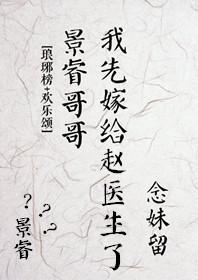 我先嫁给赵医生了
景睿哥哥
[琅琊榜+欢乐颂]
念妹留
？？？
景睿